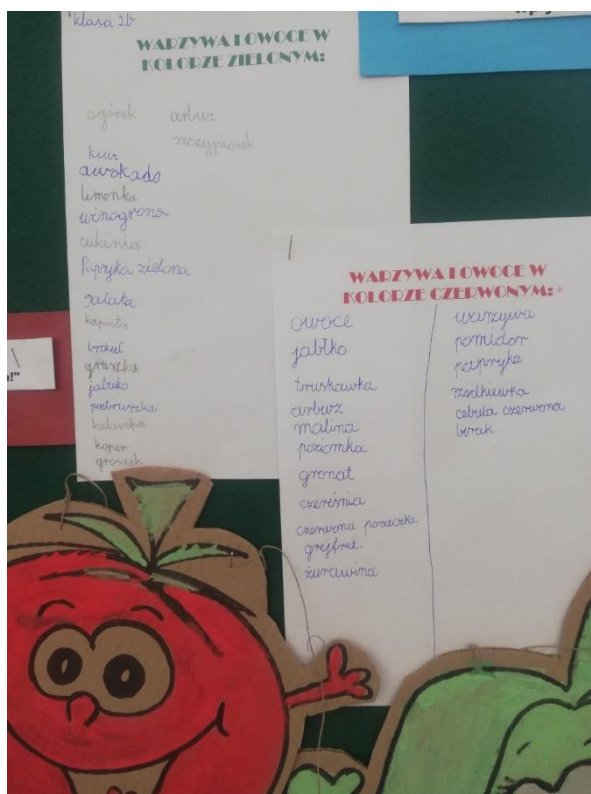 klasa 2b
WARZYWA I OWOCE W
KOLORZE ZIELONYM:
ogórek arbuz
szczypiorek
kiwi
awokado
limonka
winogrona
cukinia
Papryka zielona
sałata
kapusta
brokuł
gruszka
jabłko
pietruszka
kalarepa
koper
groszek
WARZYWA I OWOCE W
KOLORZE CZERWONYM:
owoce
jabłko
truskawka
arbuz
malina
poziomka
granat
czereśnia
czerwona porzeczka
grejfrut
żurawina
warzywa
pomidor
papryka
rzodkiewka
cebula czerwona
burak